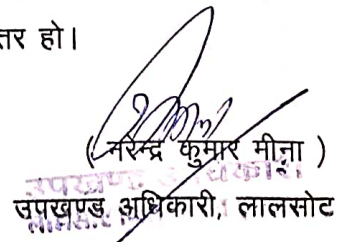 तर हो।
( नरेन्द्र कुमार मीना )
उपखण्ड अधिकारी, लालसोट